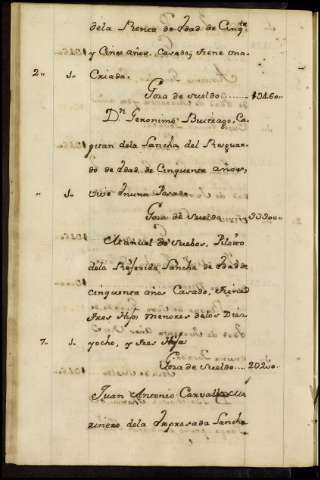 dela Renta de Edad de Cinqta
y Cinco años, Casado, tiene una
2„ 1„ Criada.
Goza de sueldo
Dn Geronimo Buitrago, Ca-
pitan dela Lancha del Resguar-
do de Edad de Cinquenta años,
„ 1„ vive en una Posada
Goza de sueldo
Manuel de Suebos, Piloto
dela Referida Lancha de Edad de
cinquenta años Casado, tiene
tres Hijos menores de los Diez
7„ 1„ yocho, y tres Hijas
Goza de sueldo
Juan Antonio Carvallo
dela Expresada Lancha